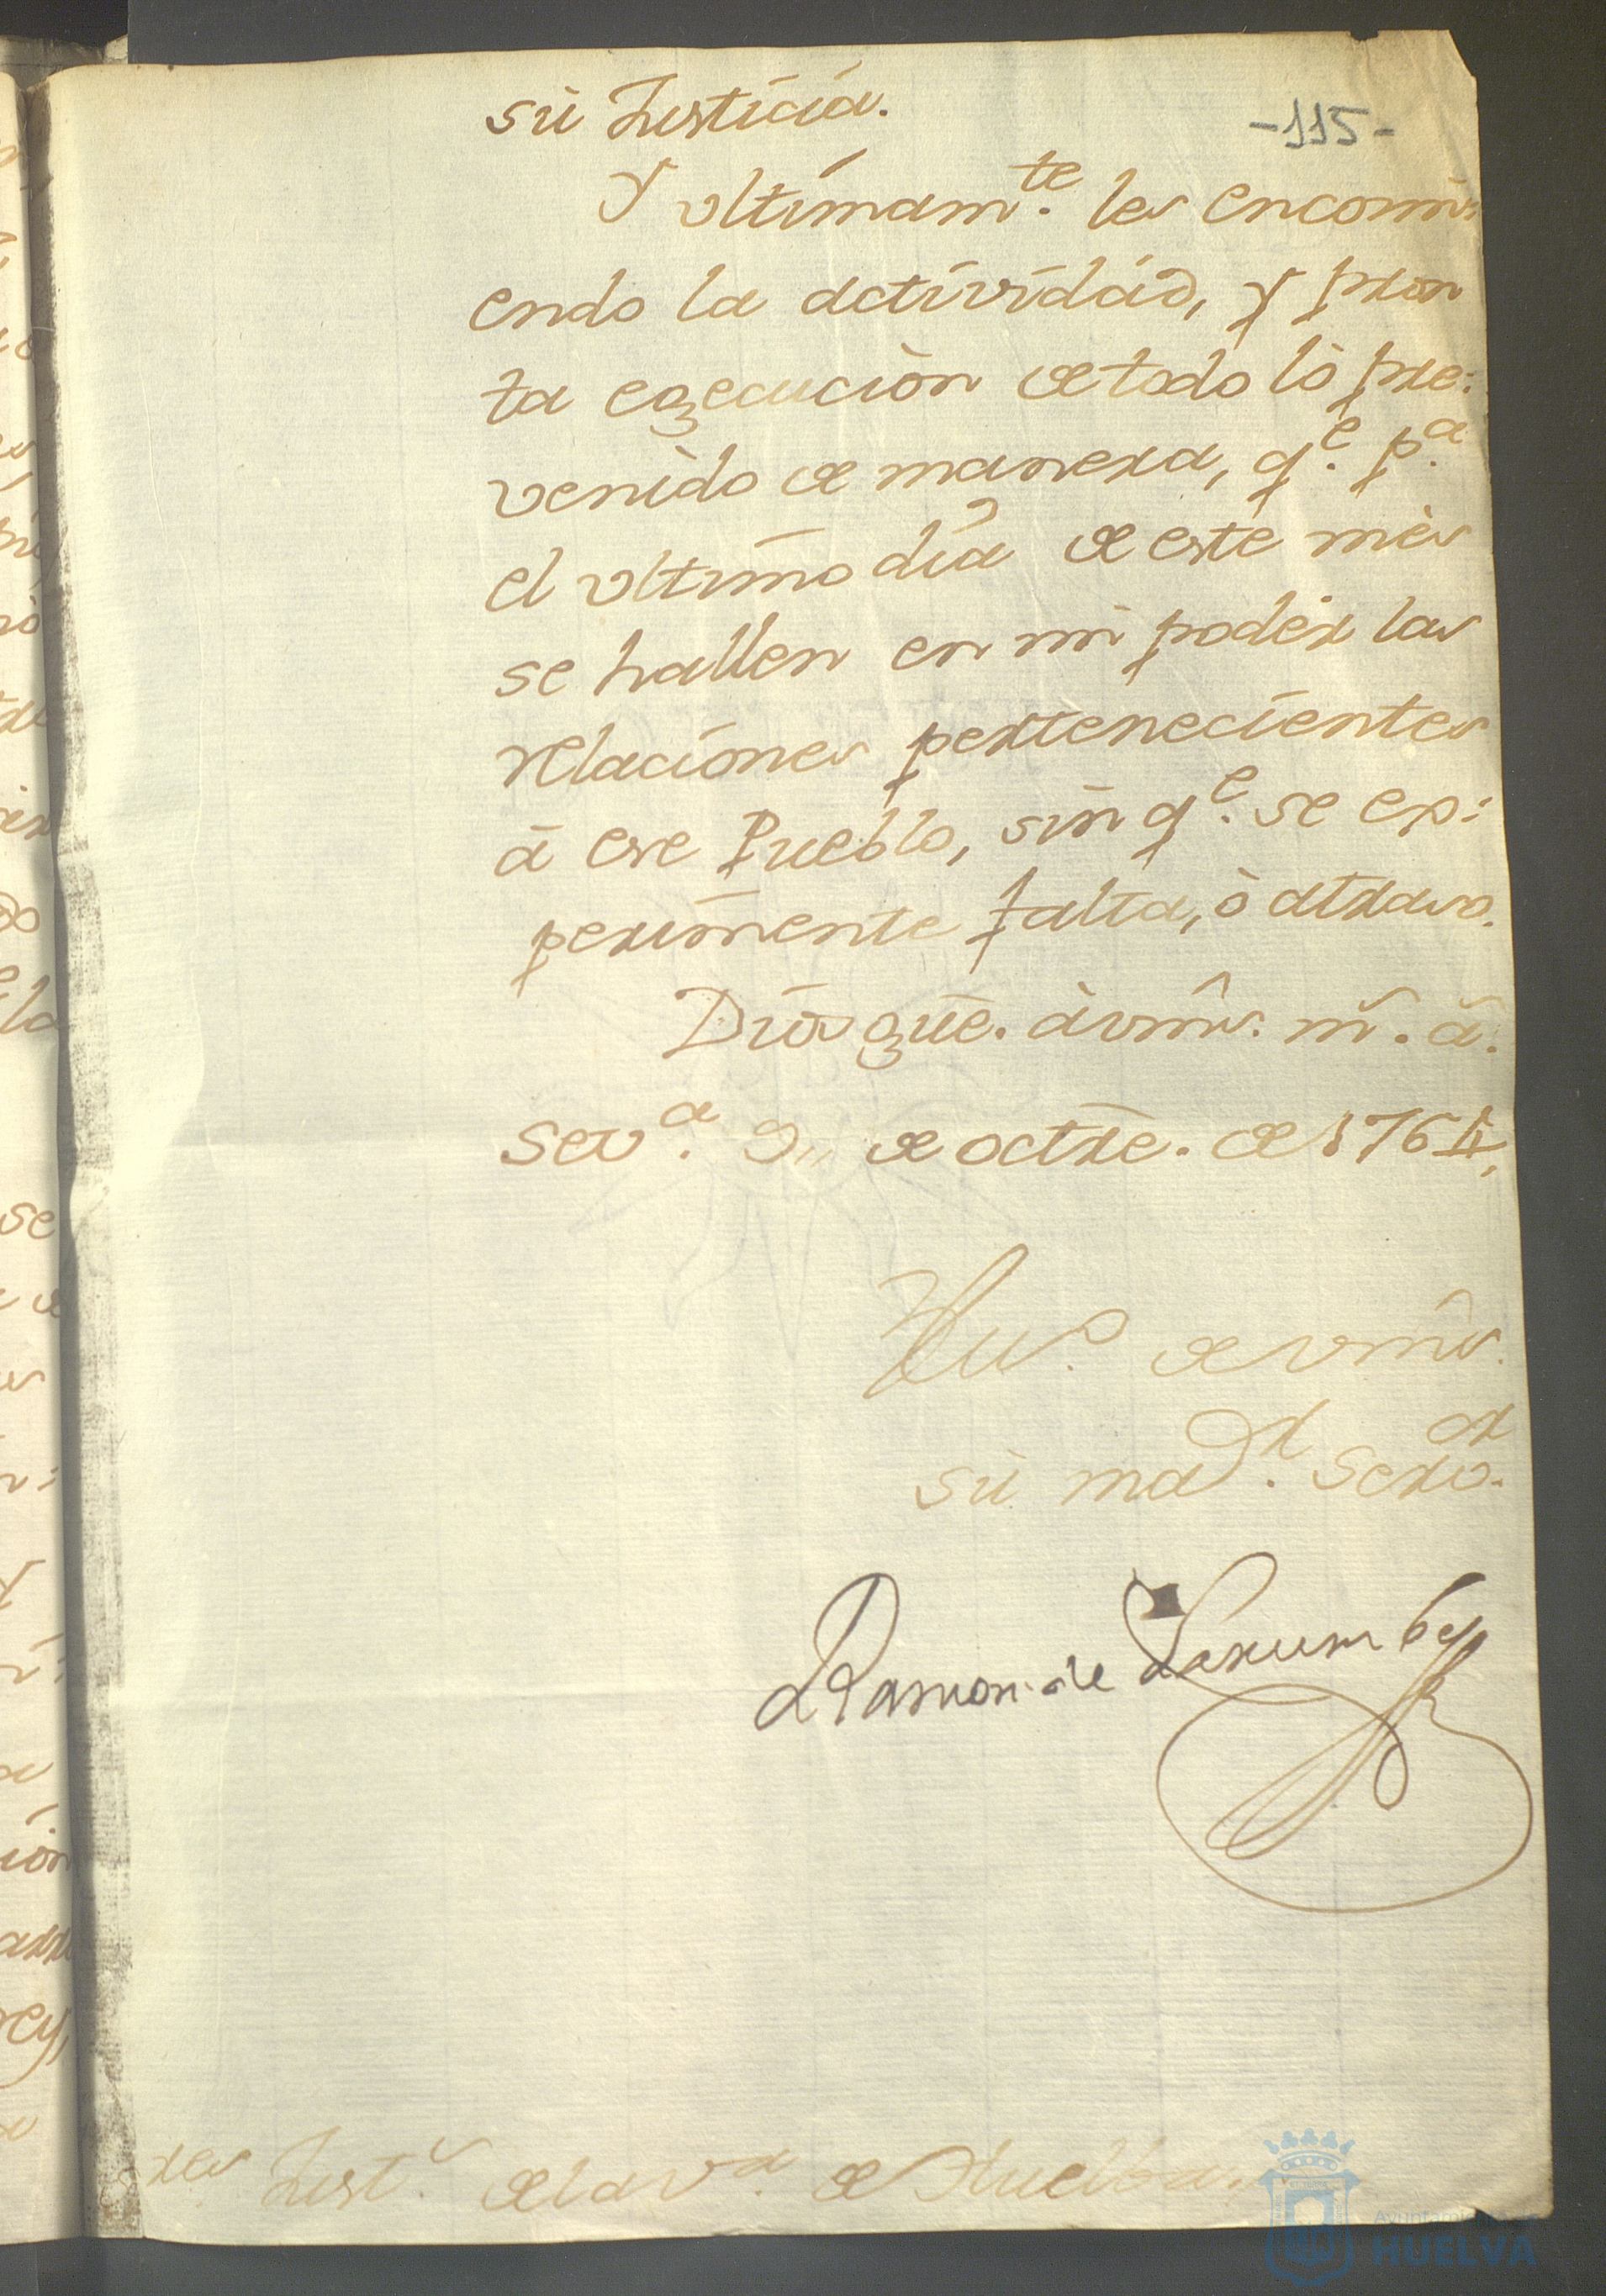 su Justicia.
-115-
Y ultimam.te les encomi
endo la actividad, y pron
ta egecucion de todo lo pre:
venido de manera, q.e p.a
el ultimo dia de este mes
se hallen en mi poder las
relaciones pertenecientes
à ese Pueblo, sin q.e se ex:
perimente falta, ò atraso.
Dios gue. à vms. m.s a.s
Sev.a 9,, de octre. de 1764,
de vms.
su ma.r ser.or
Ramon de Larumbe
res Just.a de la v.a de Huelba.
Ayuntamiento de
HUELVA